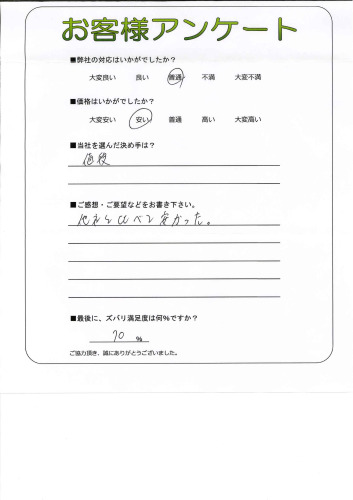 お客様アンケート
■弊社の対応はいかがでしたか？
大変良い 良い 普通 不満 大変不満
■価格はいかがでしたか？
大変安い 安い 普通 高い 大変高い
■当社を選んだ決め手は？
価段
■ご感想・ご要望などをお書き下さい。
他社と比べて安かった。
■最後に、ズバリ満足度は何%ですか？
70 %
ご協力頂き、誠にありがとうございました。